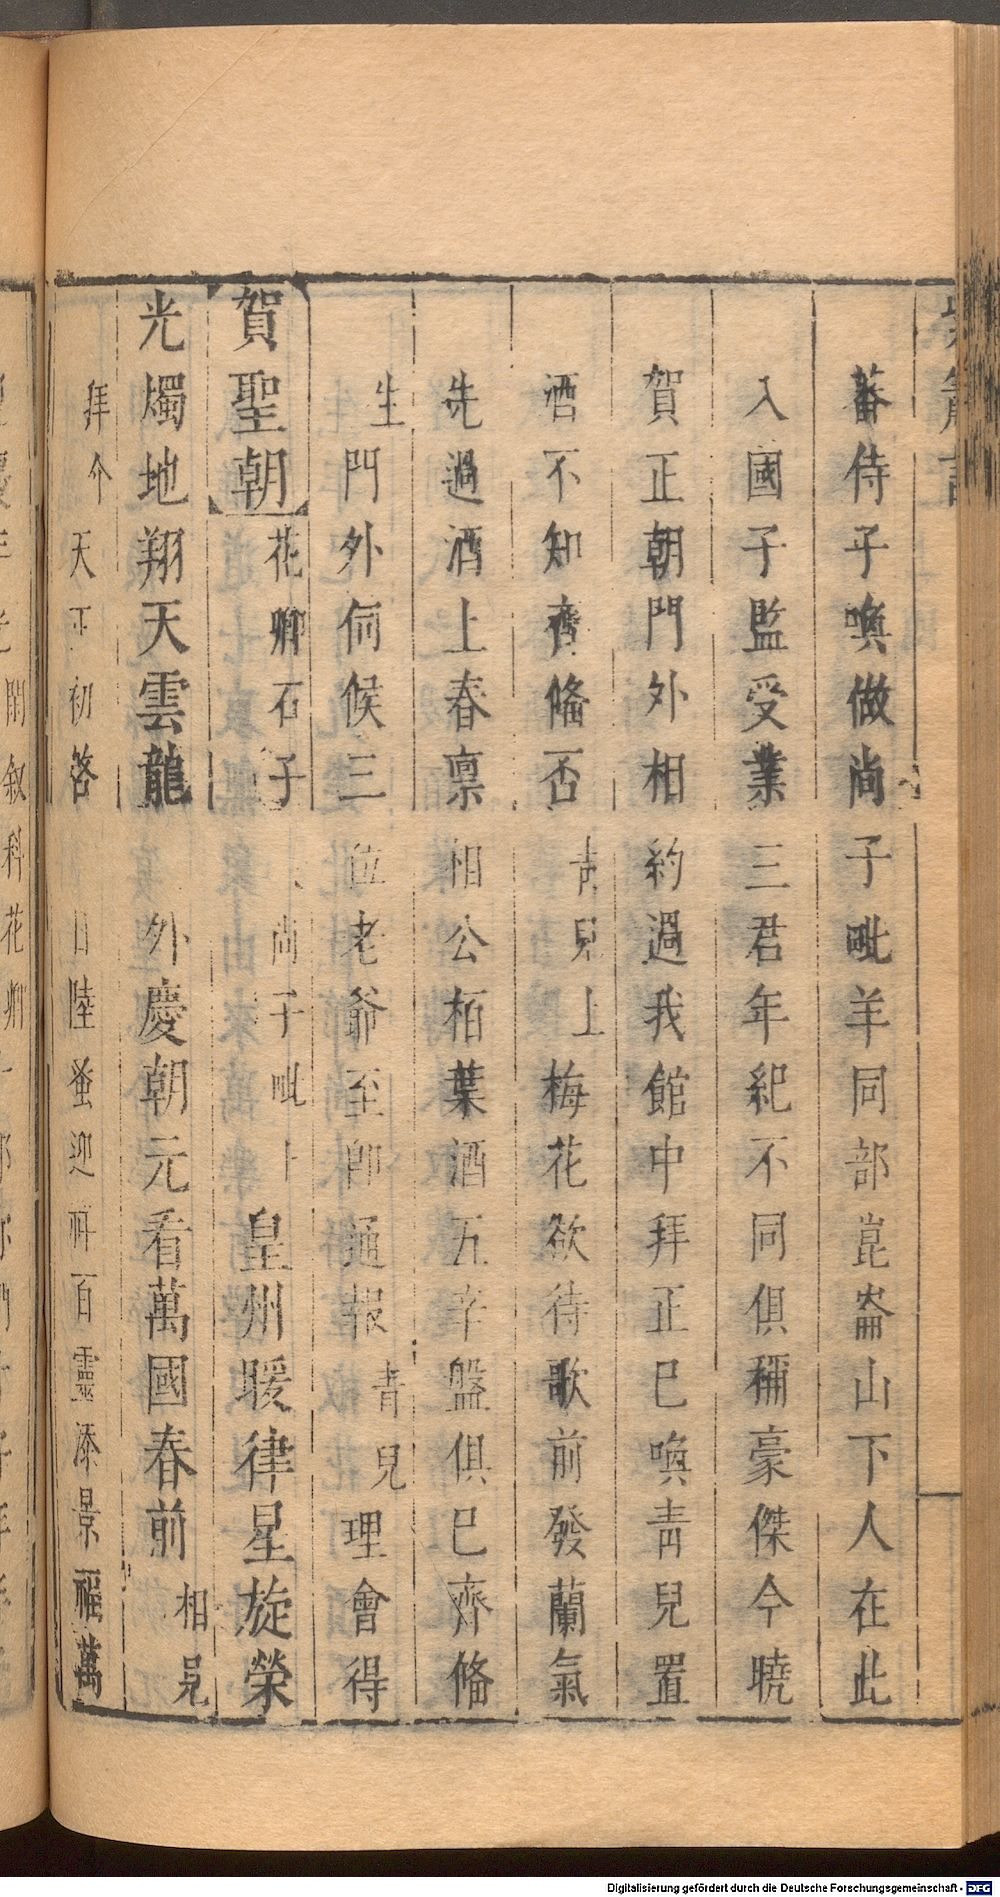 蕃侍子喚做尚子毗羊同部崑崙山下人在此
入國子監受業三君年紀不同俱稱豪傑今曉
賀正朝門外相約過我館中拜正已喚靑兒置
酒不知齊備否 兒上梅花欲待歌前發蘭氣
先過酒上春禀相公栢葉酒五辛盤俱已齊備
生門外伺候三位老爺至卽通報靑兒理會得
賀聖朝花卿石子 尚子毗上皇州暖律星旋榮
光燭地翔天雲龍外慶朝元看萬國春前相見
拜介天下初啓 日陸蚤迎祥百靈添景福萬
Digitalisierung gefördert durch die Deutsche Forschungsgemeinschaft - DFG